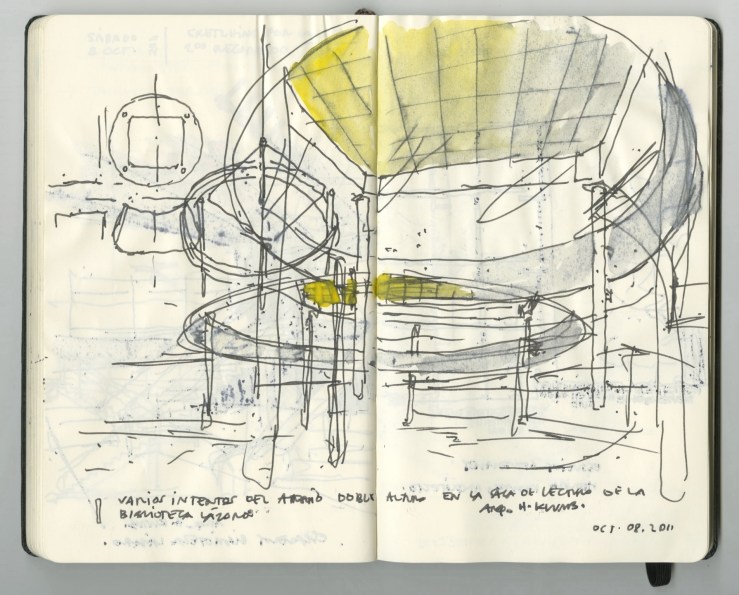 VARIOS INTENTOS DEL ATRIO DOBLE ALTURA EN LA SALA DE LECTURA DE LA
BIBLIOTECA LÁZARO. ARQ. H. KLUMB.
OCT. 08. 2011